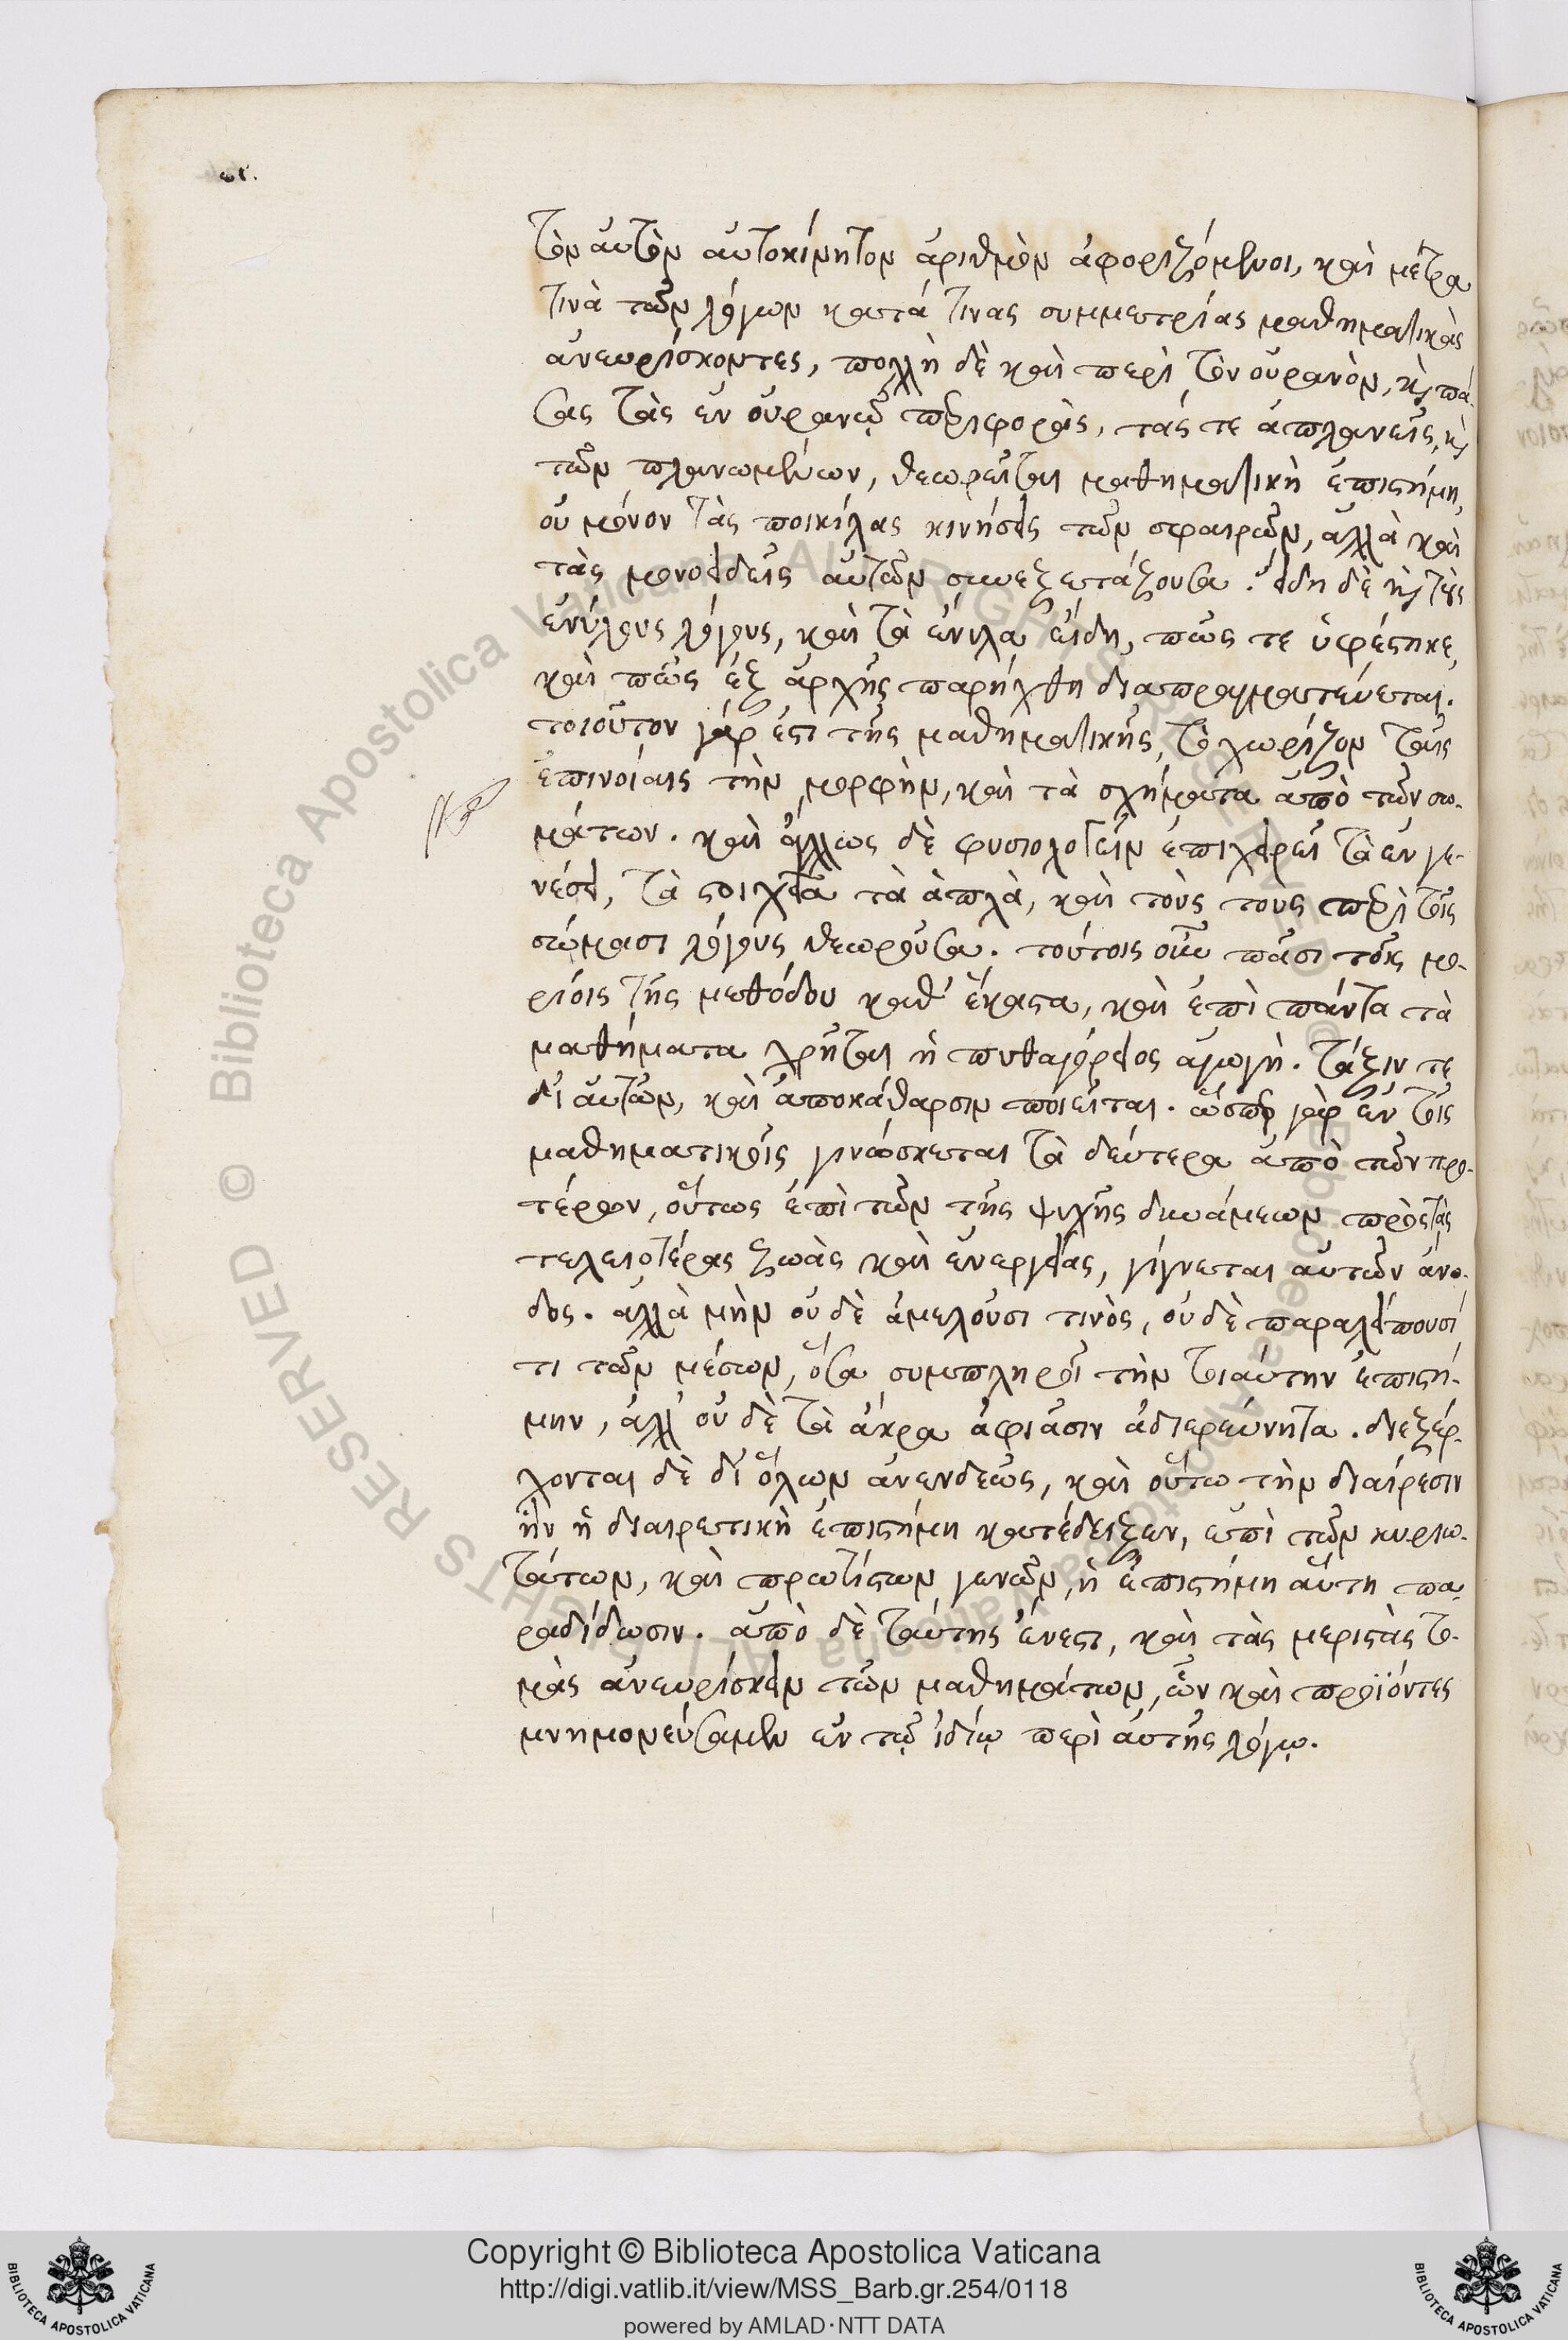 τὸν αὐτὸν αὐτοκίνητον ἀριθμὸν ἀφοριζόμενοι, καὶ μέτρα
τινὰ τῶν λόγων κατά τινας συμμετρίας μαθηματικὰς
ἀνευρίσκοντες, πολλὴ δὲ καὶ περὶ τὸν οὐρανὸν, καὶ πά-
σας τὰς ἐν οὐρανῷ περιφορὰς, τάς τε ἀπλανεῖς, καὶ
τῶν πλανωμένων, θεωρεῖται μαθηματικὴ ἐπιστήμη,
οὐ μόνον τὰς ποικίλας κινήσεις τῶν σφαιρῶν, ἀλλὰ καὶ
τὰς μονοειδεῖς αὐτῶν συνεξετάζουσα. εἴδη δὲ καὶ τοὺς
ἐνύλους λόγους, καὶ τὰ ἔνυλα εἴδη, πῶς τε ὑφέστηκε,
καὶ πῶς ἐξ ἀρχῆς παρήχθη διαπραγματεύεται.
τοιοῦτον γάρ ἐστι τῆς μαθηματικῆς, τὸ χωρίζον ταῖς
ἐπινοίαις τὴν μορφὴν, καὶ τὰ σχήματα ἀπὸ τῶν σω-
μάτων. καὶ ἄλλως δὲ φυσιολογεῖν ἐπιχειρεῖ τὰ ἐν γε-
νέσει, τὰ στοιχεῖα τὰ ἁπλὰ, καὶ τοὺς τοὺς περὶ τοῖς
σώμασι λόγους θεωροῦσα. τούτοις οὖν πᾶσι τοῖς μο-
ρίοις τῆς μεθόδου καθ' ἕκαστα, καὶ ἐπὶ πάντα τὰ
μαθήματα χρῆται ἡ πυθαγόρειος ἀγωγὴ. τάξιν τε
δι αὐτῶν, καὶ ἀποκάθαρσιν ποιεῖται. ὥσπερ γὰρ ἐν τοῖς
μαθηματικοῖς γινώσκεται τὰ δεύτερα ἀπὸ τῶν προ-
τέρων, οὕτως ἐπὶ τῶν τῆς ψυχῆς δυνάμεων πρὸς τὰς
τελειοτέρας ζωὰς καὶ ἐνεργείας, γίγνεται αὐτῶν ἄνο-
δος. ἀλλὰ μὴν οὐδὲ ἀμελοῦσι τινὸς, οὐδὲ παραλείπουσί
τι τῶν μέσων, ὅσα συμπληροῖ τὴν τοιαύτην ἐπιστή-
μην, ἀλλ' οὐδὲ τὰ ἄκρα ἀφιᾶσιν ἀδιερεύνητα. διεξέρ-
χονται δὲ δι ὅλων ἀνενδεῶς, καὶ οὕτω τὴν διαίρεσιν
ἣν ἡ διαιρετικὴ ἐπιστήμη κατέδειξεν, ἐπὶ τῶν κυριω-
τάτων, καὶ πρωτίστων γενῶν, ἡ ἐπιστήμη αὕτη πα-
ραδίδωσιν. ἀπὸ δὲ ταύτης ἔνεστι, καὶ τὰς μεριστὰς το-
μὰς ἀνευρίσκειν τῶν μαθημάτων, ὧν καὶ προϊόντες
μνημονεύσαμεν ἐν τῷ ἰδίῳ περὶ αὐτῆς λόγῳ.
Copyright © Biblioteca Apostolica Vaticana
http://digi.vatlib.it/view/MSS_Barb.gr.254/0118
powered by AMLAD·NTT DATA
BIBLIOTECA APOSTOLICA VATICANA
BIBLIOTECA APOSTOLICA VATICANA